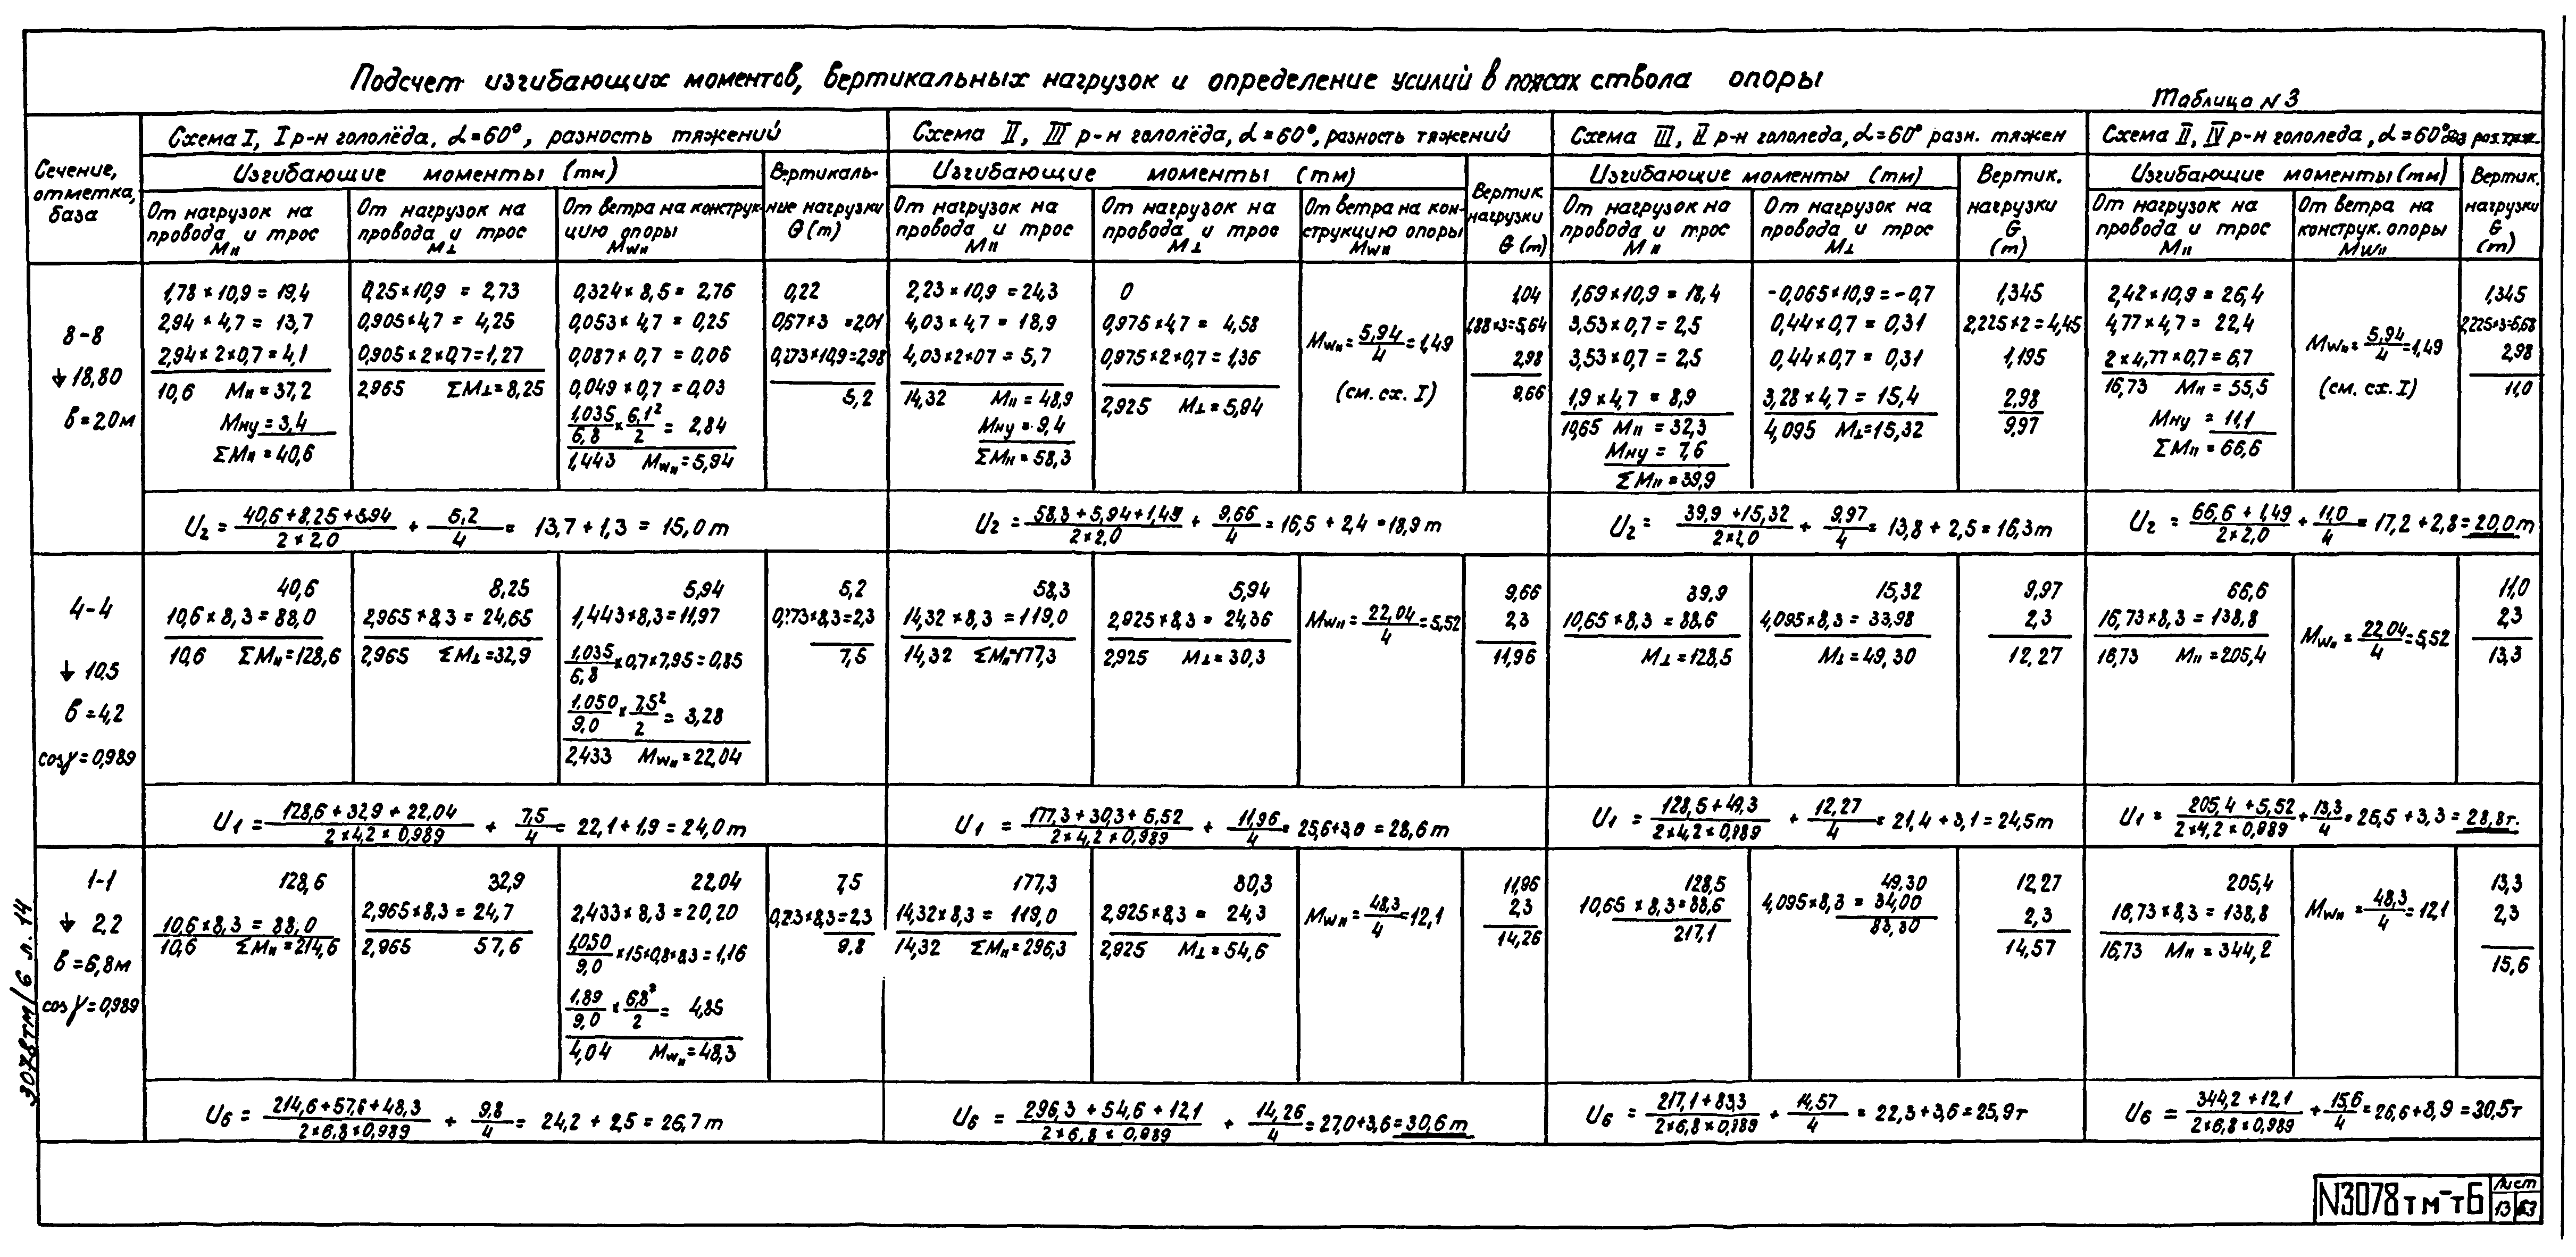 Подсчет изгибающих моментов, вертикальных нагрузок и определение усилий в поясах ствола опоры
Таблица N 3
Сечение, отметка, база
Схема I, I р-н гололёда, α=60°, разность тяжений
Изгибающие моменты (тм)
Вертикальные нагрузки G (т)
От нагрузок на провода и трос М॥
От нагрузок на провода и трос М⊥
От ветра на конструкцию опоры Мw॥
Схема II, III р-н гололёда, α=60°, разность тяжений
Изгибающие моменты (тм)
Вертик. нагрузки G (т)
От нагрузок на провода и трос М॥
От нагрузок на провода и трос М⊥
От ветра на конструкцию опоры Мw॥
Схема III, II р-н гололеда, α=60° разн. тяжен
Изгибающие моменты (тм)
Вертик. нагрузки G (т)
От нагрузок на провода и трос М॥
От нагрузок на провода и трос М⊥
Схема II, IV р-н гололеда, α=60°
Изгибающие моменты (тм)
Вертик. нагрузки G (т)
От нагрузок на провода и трос М॥
От ветра на конструк. опоры Мw॥
8-8
↓ 18,80
в=2,0м
1,78×10,9=19,4
2,94×4,7=13,7
2,94×2×0,7=4,1
10,6 М॥=37,2
Мну=3,4
ΣМ॥=40,6
0,25×10,9=2,73
0,905×4,7=4,25
0,905×2×0,7=1,27
2,965 ΣМ⊥=8,25
0,324×8,5=2,76
0,053×4,7=0,25
0,087×0,7=0,06
0,049×0,7=0,03
1,035/6,8×6,1²/2=2,84
1,443 Мw॥=5,94
0,22
0,67×3=2,01
0,273×10,9=2,98
5,2
2,23×10,9=24,3
4,03×4,7=18,9
4,03×2×07=5,7
14,32 М॥=48,9
Мну=9,4
ΣМ॥=58,3
0
0,975×4,7=4,58
0,975×2×0,7=1,36
2,925 М⊥=5,94
Мw॥=5,94/4=1,49
(см. сх. I)
1,04
1,88×3=5,64
2,98
9,66
1,69×10,9=18,4
3,53×0,7=2,5
3,53×0,7=2,5
1,9×4,7=8,9
10,65 М॥=32,3
Мну=7,6
ΣМ॥=39,9
-0,065×10,9=-0,7
0,44×0,7=0,31
0,44×0,7=0,31
3,28×4,7=15,4
4,095 М⊥=15,32
1,345
2,225×2=4,45
1,195
2,98
9,97
2,42×10,9=26,4
4,77×4,7=22,4
2×4,77×0,7=6,7
16,73 М॥=55,5
Мну=11,1
ΣМ॥=66,6
Мw॥=5,94/4=1,49
(см. сх. I)
1,345
2,225×3=6,68
2,98
11,0
U₂=(40,6+8,25+5,94)/(2×2,0)+5,2/4=13,7+1,3=15,0т
U₂=(58,3+5,94+1,49)/(2×2,0)+9,66/4=16,5+2,4=18,9т
U₂=(39,9+15,32)/(2×2,0)+9,97/4=13,8+2,5=16,3т
U₂=(66,6+1,49)/(2×2,0)+11,0/4=17,2+2,8=20,0т
4-4
↓ 10,5
в=4,2
cosγ=0,989
40,6
10,6×8,3=88,0
10,6 ΣМ॥=128,6
8,25
2,965×8,3=24,65
2,965 ΣМ⊥=32,9
5,94
1,443×8,3=11,97
1,035/6,8×0,7×7,95=0,85
1,050/9,0×7,5²/2=3,28
2,433 Мw॥=22,04
5,2
0,273×8,3=2,3
7,5
58,3
14,32×8,3=119,0
14,32 ΣМ॥=177,3
5,94
2,925×8,3=24,36
2,925 М⊥=30,3
Мw॥=22,04/4=5,52
9,66
2,3
11,96
39,9
10,65×8,3=88,6
М⊥=128,5
15,32
4,095×8,3=33,98
М⊥=49,30
9,97
2,3
12,27
66,6
16,73×8,3=138,8
16,73 М॥=205,4
Мw॥=22,04/4=5,52
11,0
2,3
13,3
U₁=(128,6+32,9+22,04)/(2×4,2×0,989)+7,5/4=22,1+1,9=24,0т
U₁=(177,3+30,3+5,52)/(2×4,2×0,989)+11,96/4=25,6+3,0=28,6т
U₁=(128,5+49,3)/(2×4,2×0,989)+12,27/4=21,4+3,1=24,5т
U₁=(205,4+5,52)/(2×4,2×0,989)+13,3/4=26,5+3,3=28,8т.
1-1
↓ 2,2
в=6,8м
cosγ=0,989
128,6
10,6×8,3=88,0
10,6 ΣМ॥=214,6
32,9
2,965×8,3=24,7
2,965 57,6
22,04
2,433×8,3=20,20
1,050/9,0×15×0,8×8,3=1,16
1,89/9,0×6,8²/2=4,85
4,04 Мw॥=48,3
7,5
0,273×8,3=2,3
9,8
177,3
14,32×8,3=119,0
14,32 ΣМ॥=296,3
30,3
2,925×8,3=24,3
2,925 М⊥=54,6
Мw॥=48,3/4=12,1
11,96
2,3
14,26
128,5
10,65×8,3=88,6
217,1
49,30
4,095×8,3=34,00
83,30
12,27
2,3
14,57
205,4
16,73×8,3=138,8
16,73 М॥=344,2
Мw॥=48,3/4=12,1
13,3
2,3
15,6
U₆=(214,6+57,6+48,3)/(2×6,8×0,989)+9,8/4=24,2+2,5=26,7т
U₆=(296,3+54,6+12,1)/(2×6,8×0,989)+14,26/4=27,0+3,6=30,6т
U₆=(217,1+83,3)/(2×6,8×0,989)+14,57/4=22,3+3,6=25,9т
U₆=(344,2+12,1)/(2×6,8×0,989)+15,6/4=26,6+3,9=30,5т
3078тм/6 л. 14
N3078тм-т6
Лист
13
63